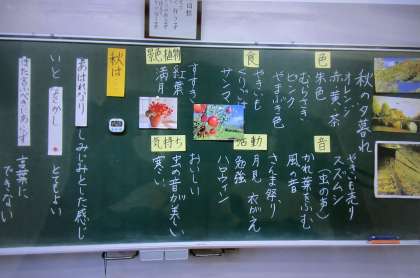 秋の夕暮れ
色
オレンジ
赤 黄 茶
朱色
むらさき
ピンク
やまぶき色
音
やきいも売り
スズムシ
(虫の声)
かれ葉をふむ
風の音
食
やきいも
くり
サンマ
活動
さんま祭り
月見 衣がえ
勉強
ハロウィン
景色 植物
すすき
紅葉
満月
気持ち
おいしい
虫の音が美しい
寒い
秋は…
あはれなり
しみじみとした感じ
いと をかし
とてもよい
はた言ふべきにあらず
言葉にできない